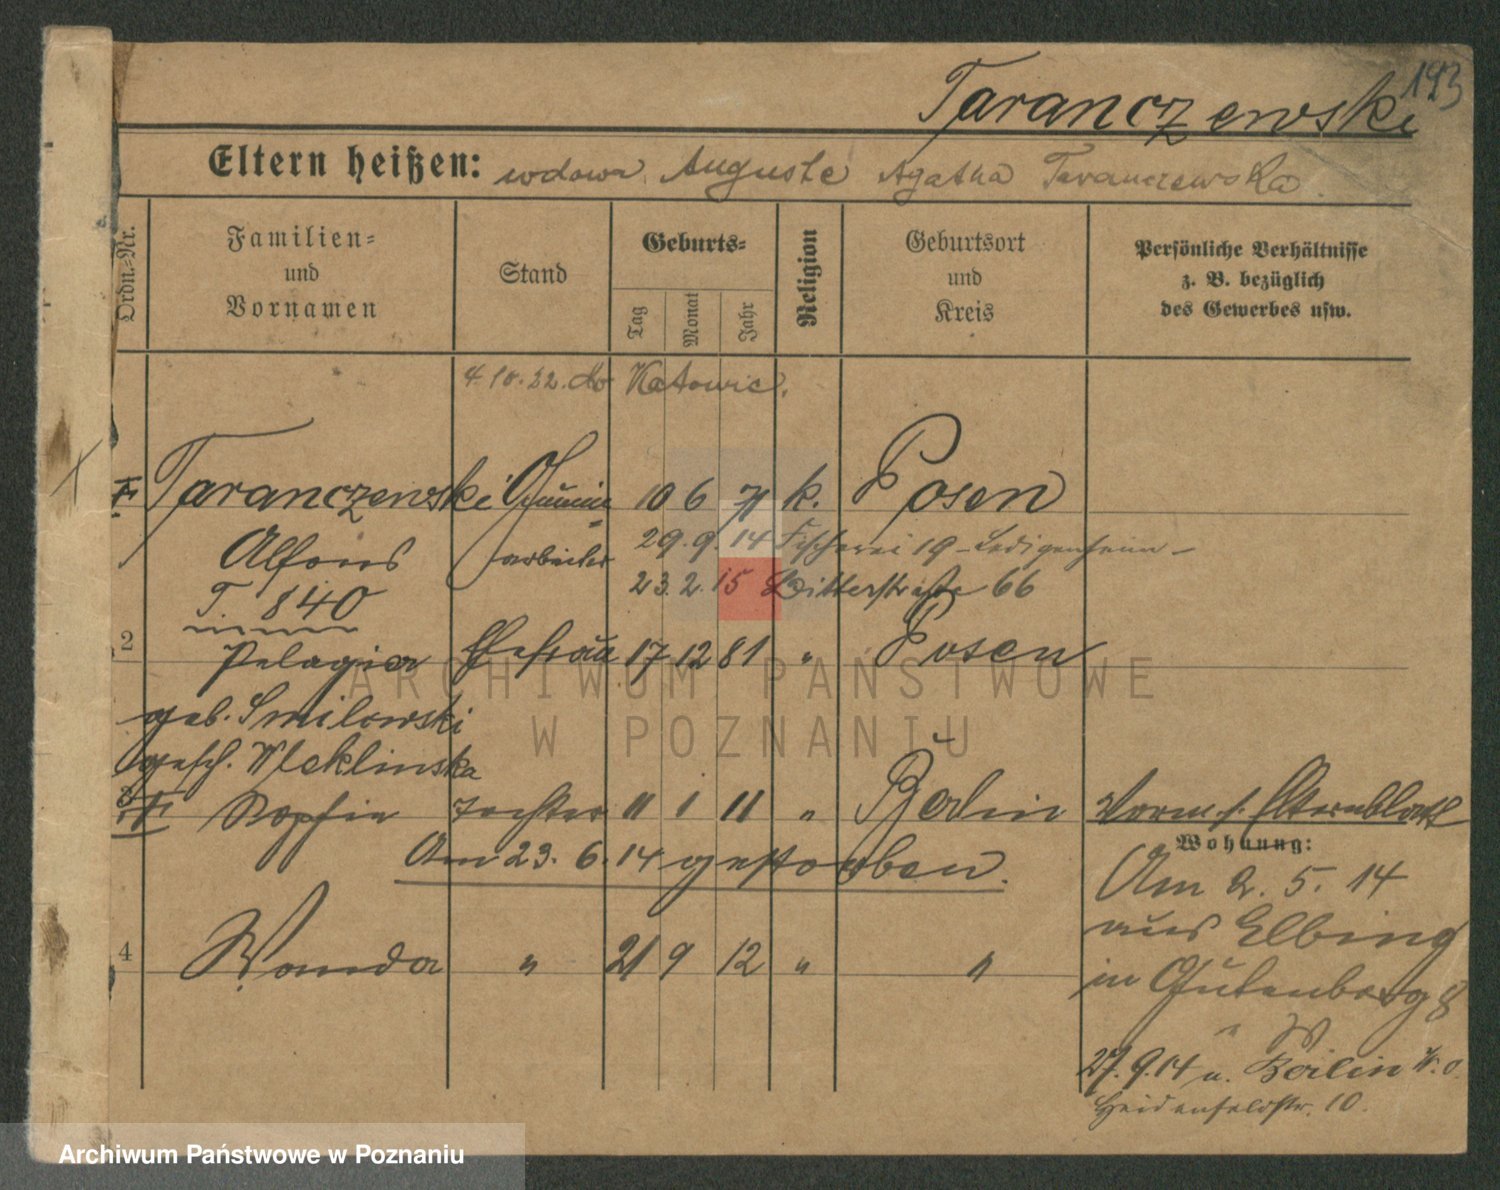 193
Taranczewski
Eltern heißen: wdowa Auguste Agatha Taranczewska
Ordn.-Nr.
Familien-
und
Vornamen
Stand
Geburts-
Tag
Monat
Jahr
Religion
Geburtsort
und
Kreis
Persönliche Verhältnisse
z. B. bezüglich
des Gewerbes usw.
4.10.22. do Katowic.
Taranczewski 10 6 71 k. Posen
Alfons arbeiter 29. 9. 14 Fischerei 19 - Ledigenheim -
T. 840 23. 2. 15 Bitterstraße 66
2 Pelagia Ehefrau 17 12 81 " Posen
geb. Smilowski
gesch. Weklinska
3 Sophie Tochter 11 1 11 " Berlin Vorm. s. Elternblatt
Am 23. 6. 14 gestorben.
Wohnung:
Am 2. 5. 14
aus Elbing
in Gutenberg 8
4 Wanda " 21 9 12 " "
27. 9. 14 n. Berlin W. O.
Heidenfeldstr. 10.
ARCHIWUM PAŃSTWOWE
W POZNANIU
Archiwum Państwowe w Poznaniu